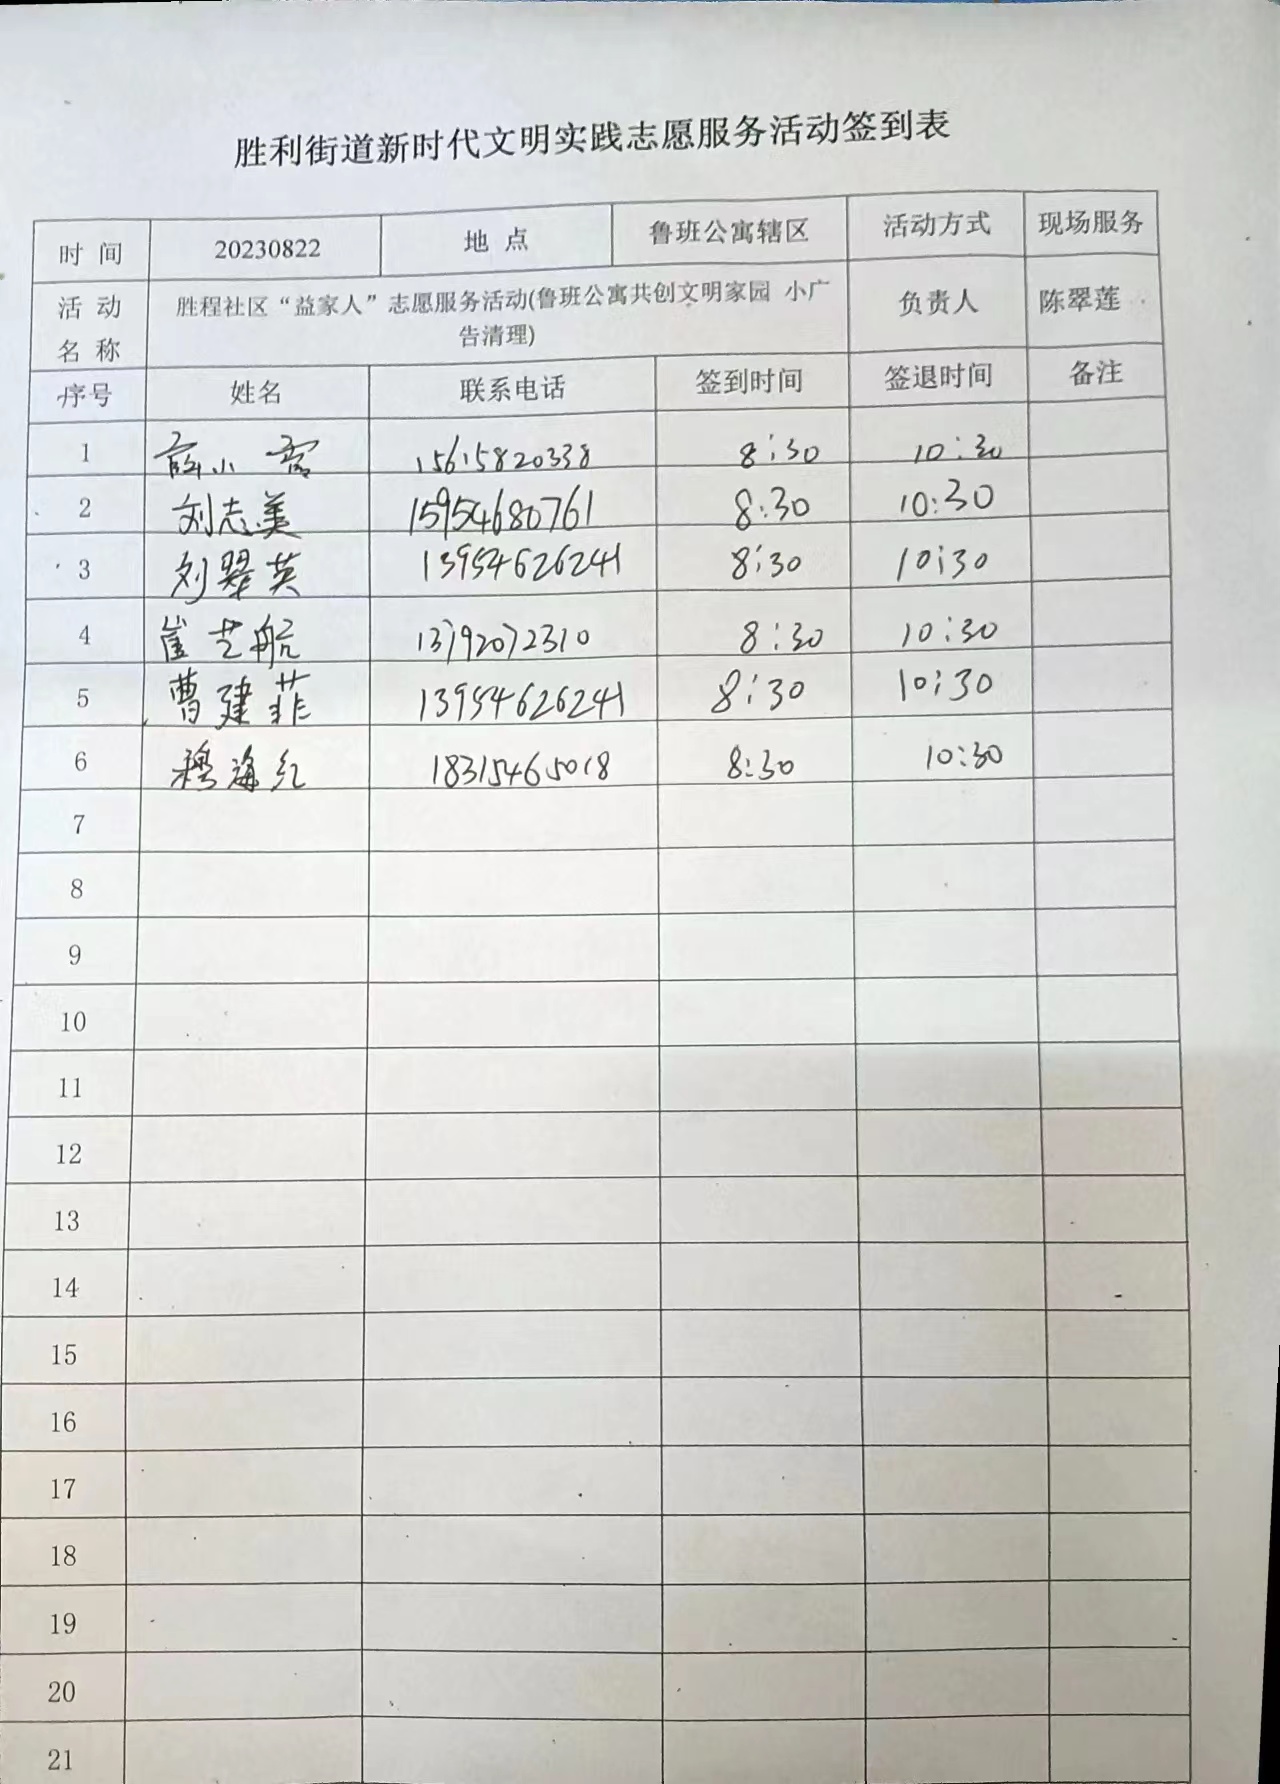 胜利街道新时代文明实践志愿服务活动签到表
时 间 20230822 地 点 鲁班公寓辖区 活动方式 现场服务
活 动 名 称 胜程社区“益家人”志愿服务活动(鲁班公寓共创文明家园 小广告清理) 负责人 陈翠莲
序号 姓名 联系电话 签到时间 签退时间 备注
1 小 15615820338 8:30 10:30
2 刘志美 15954680761 8:30 10:30
3 刘翠英 13954626241 8:30 10:30
4 崔艺航 13792072310 8:30 10:30
5 曹建菲 13954626241 8:30 10:30
6 穆海红 18315465018 8:30 10:30
7
8
9
10
11
12
13
14
15
16
17
18
19
20
21